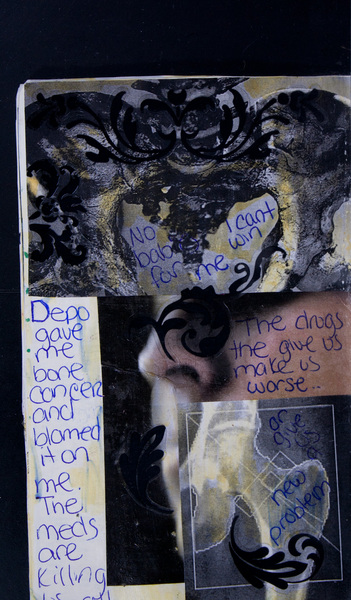 No
bab
for me
I cant
win
Depo
gave
me
bone
cancer
and
blamed
it on
me.
The
meds
are
killing
The drugs
the give us
make us
worse..
or
give
new
problem